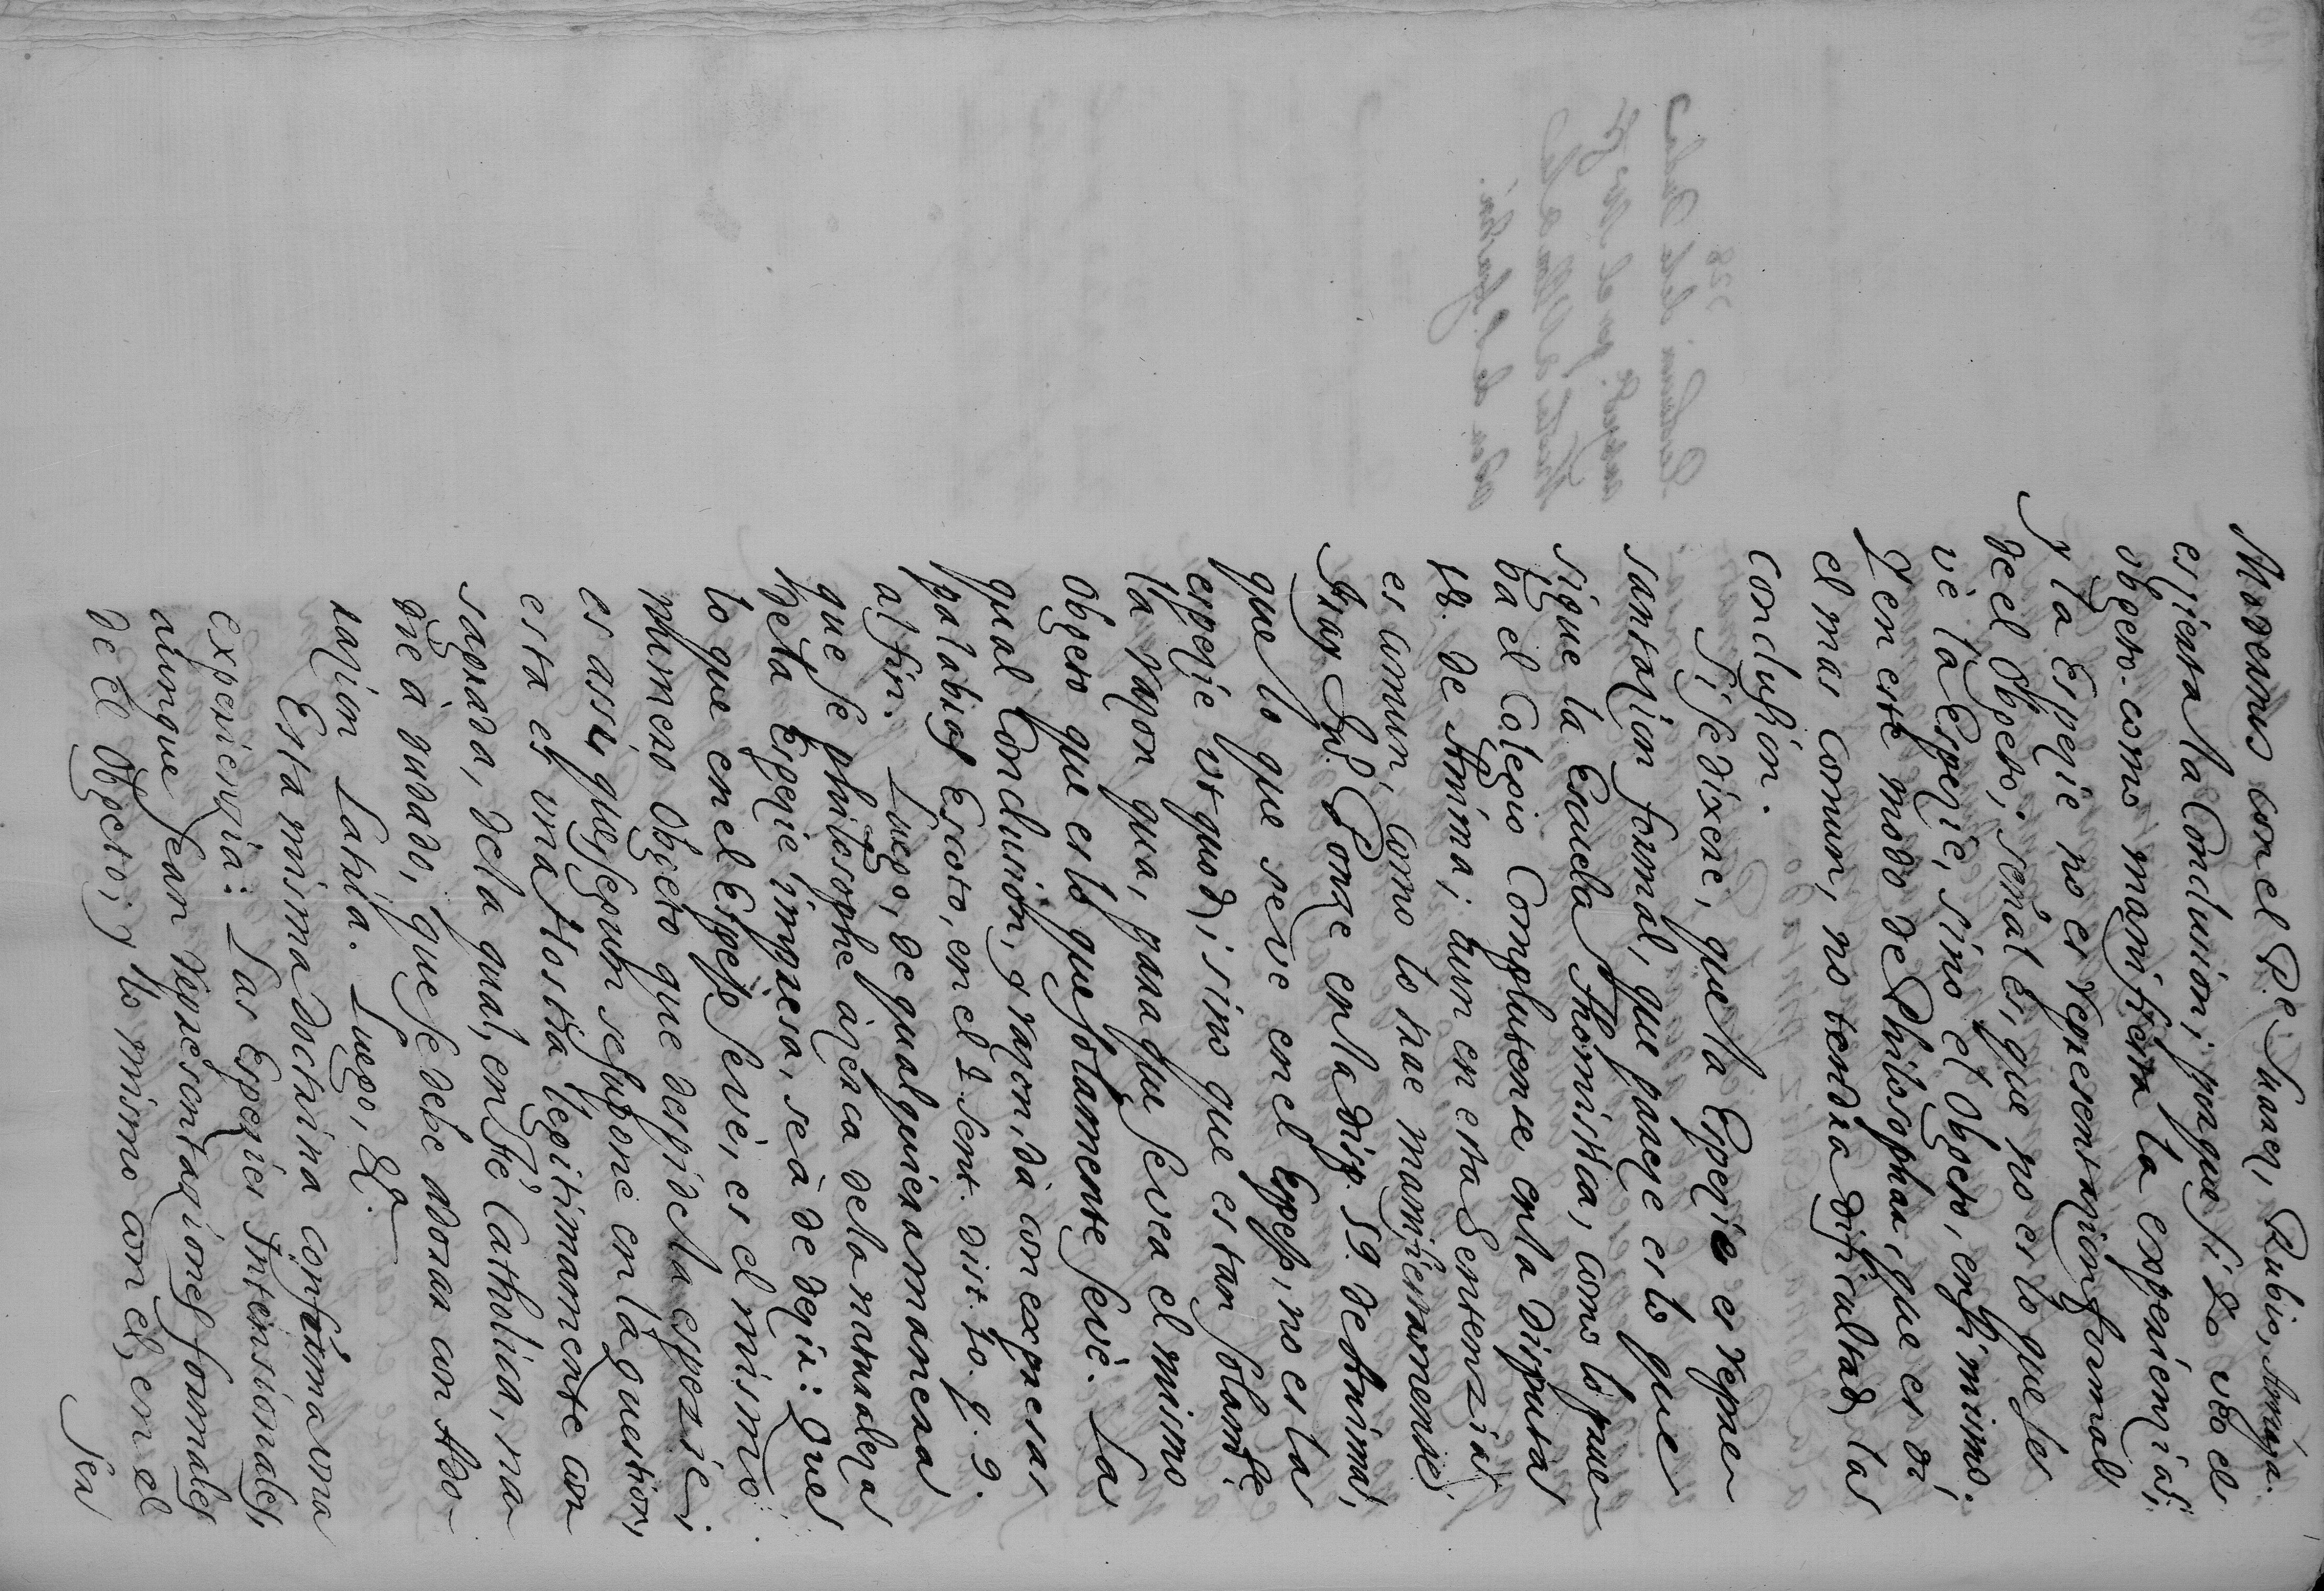 Modernos con el P.e Suarez, Rubio, Arriaga.
es zierta la Conclusion; porque si Lo vèo el
objeto como manifiesta la experienzia;
y la Espezie no es representazion formal
de el Objeto, señal es, que no es lo que se
vè la Espezie, sino el Objeto, en sì mismo:
Y en este modo de Philosophar, que es oì
el mas comun, no tendra dificultad la
Conclusion.
Si se dixere, que la Espezie es repre
santazion formal, que pareze es lo que
sigue la Escuela Thomistica, como lo prue
ba el Colegio Complutense en la Disputa
18. de Anima; aun en esta Sentenzia
es comun, como lo trae manifiestamente
Fray Ju.º Ponze en la disp. 59. de Anima,
que lo que se ve en el Espejo, no es la
espezie ut quod; sino que es tan solam.te
la razon qua, para que se vea el mismo
Objeto que es lo que solamente se vè. La
qual Conclusion, y razon, dà con expresas
palabras Escoto, en el 2. Sent. dist. 10. q. 9.
al fin. Luego, de qualquiera manera
que se philosophe àzerca de la naturaleza
de la Espezie impresa, se à de dezir: Que
lo que en el Espejo se vè, es el mismo
primero Objeto que despide la espezie;
es assi que segun se supone en la question,
esta es una Hostia legitimamente con
sagrada, de la qual, en Fè Catholica, na
die à dudado, que se debe adorar con Ado-
razion Latria. Luego, &.ª
Esta misma doctrina confirma una
experienzia: Las Espezies Intensionales,
aunque sean representaziones formales
de el Objeto; y lo mismo con èl, en el
Ser